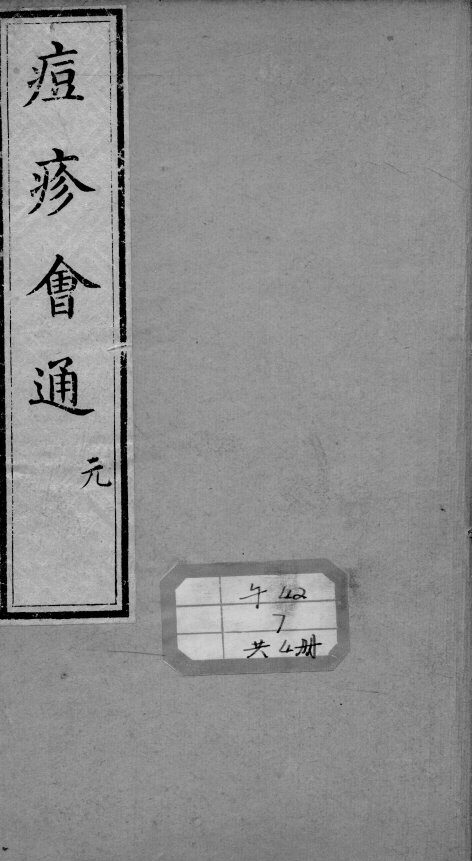 痘疹會通
元
午 42
7
共 4册